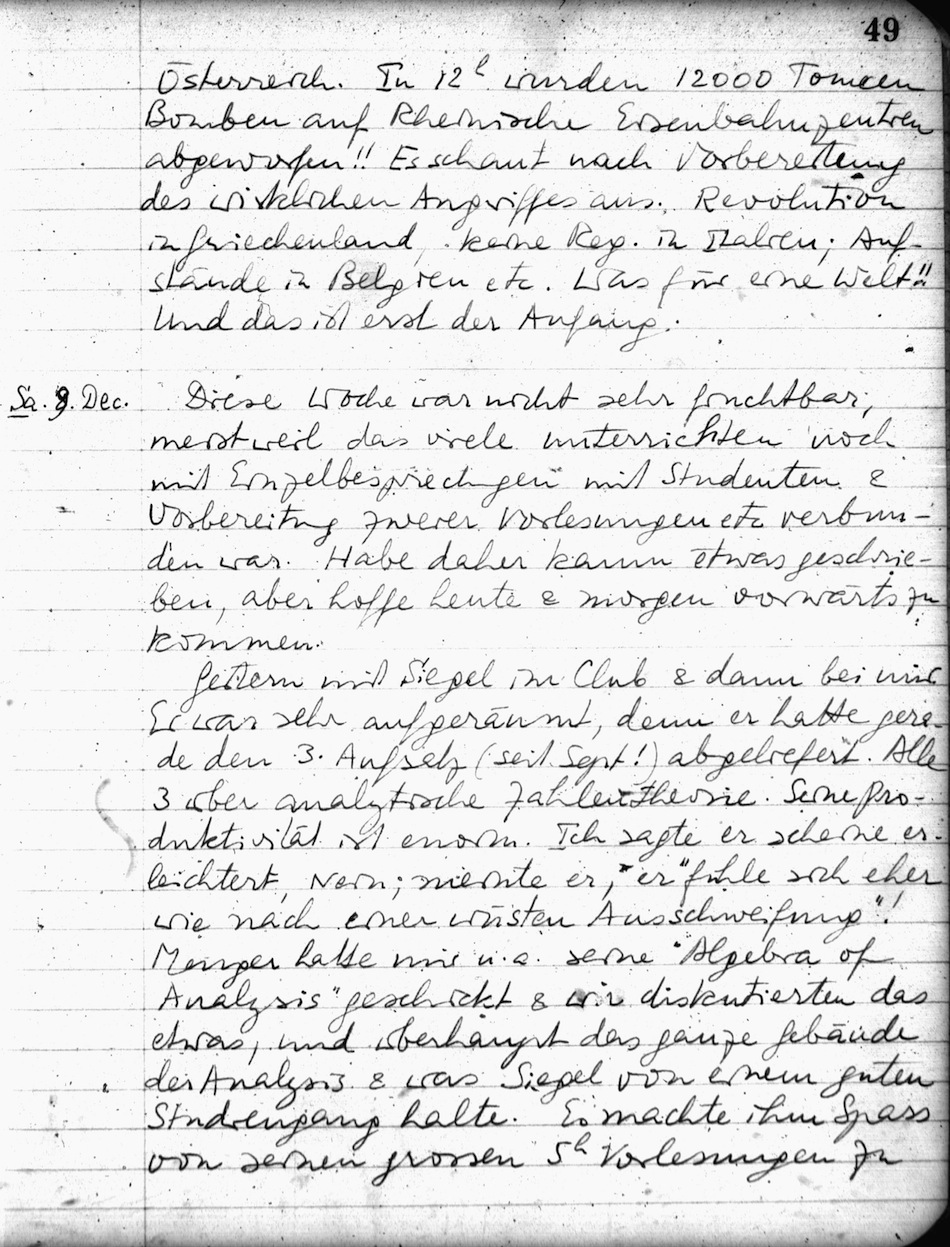 49
Österreich. In 12h wurden 12000 Tonnen
Bomben auf Rheinische Eisenbahnzentren
abgeworfen!! Es schaut nach Vorbereitung
des wirklichen Angriffes aus. Revolution
in Griechenland, keine Reg. in Italien; Auf-
stände in Belgien etc. Was für eine Welt!!
Und das ist erst der Anfang.
Sa. 9. Dec. Diese Woche war nicht sehr fruchtbar,
meist weil das viele unterrichten noch
mit Einzelbesprechungen mit Studenten &
Vorbereitung zweier Vorlesungen etc verbun-
den war. Habe daher kaum etwas geschrie-
ben, aber hoffe heute & morgen vorwärts zu
kommen.
Gestern mit Siegel im Club & dann bei mir
Er war sehr aufgeräumt, denn er hatte gera-
de den 3. Aufsatz (seit Sept!) abgeliefert. Alle
3 über analytische Zahlentheorie. Seine Pro-
duktivität ist enorm. Ich sagte er scheine er-
leichtert, Nein; meinte er, er "fühle sich eher
wie nach einer wüsten Ausschweifung"!
Menger hatte mir u.a. seine "Algebra of
Analysis" geschickt & wir diskutierten das
etwas, und überhaupt das ganze Gebäude
der Analysis & was Siegel von einem guten
Studiengang halte. Es machte ihm Spass
von seinen grossen 5h Vorlesungen zu